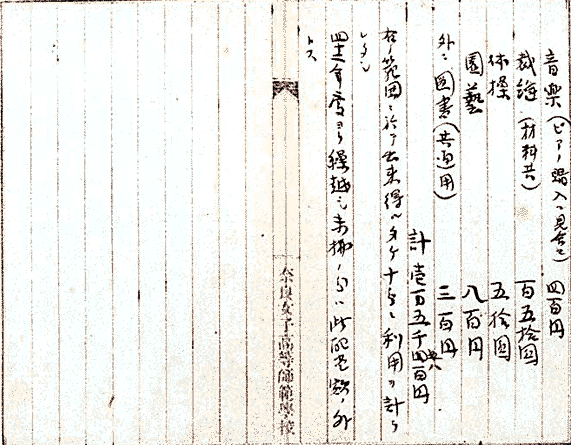 音楽（ピアノ購入ヲ見合セ）　四百円
裁縫（材料共）　百五拾圓
体操　五拾圓
園藝　八百円
外ニ図書（共通用）　三百円
計　壱万五千四百円
右ノ範囲ニ於テ出来得ルタケ十分ニ利用ヲ計ラレタシ
四十二年度ヨリ繰越シ未拂ノ分ハ此配当額ノ外トス
奈良女子高等師範學校